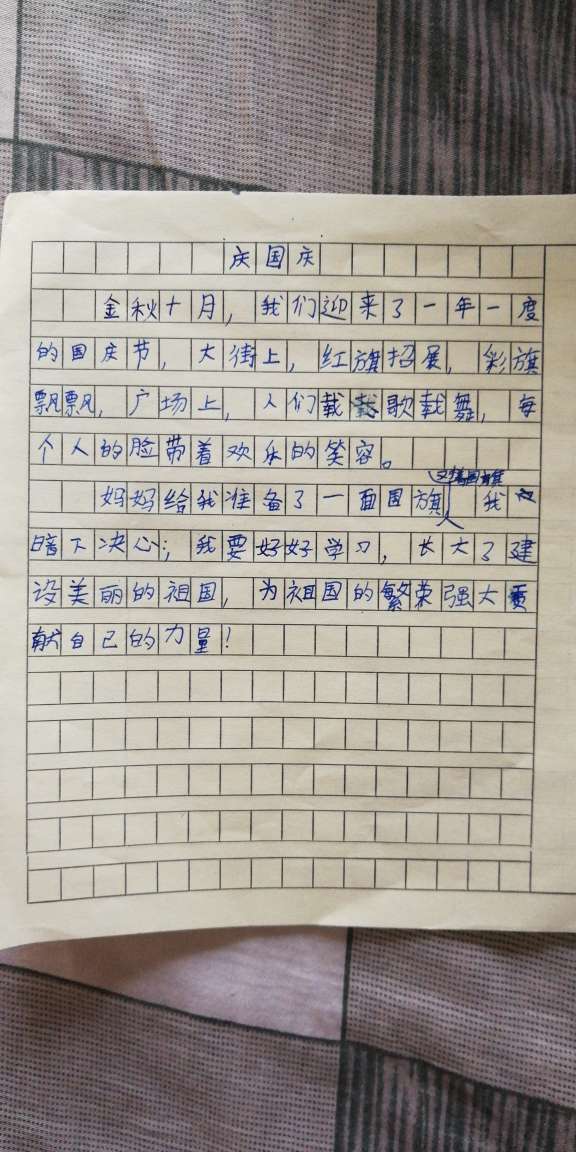 庆国庆
金秋十月，我们迎来了一年一度
的国庆节，大街上，红旗招展，彩旗
飘飘，广场上，人们载歌载舞，每
个人的脸带着欢乐的笑容。
妈妈给我准备了一面国旗，我
暗下决心；我要好好学习，长大了建
设美丽的祖国，为祖国的繁荣强大贡
献自己的力量！